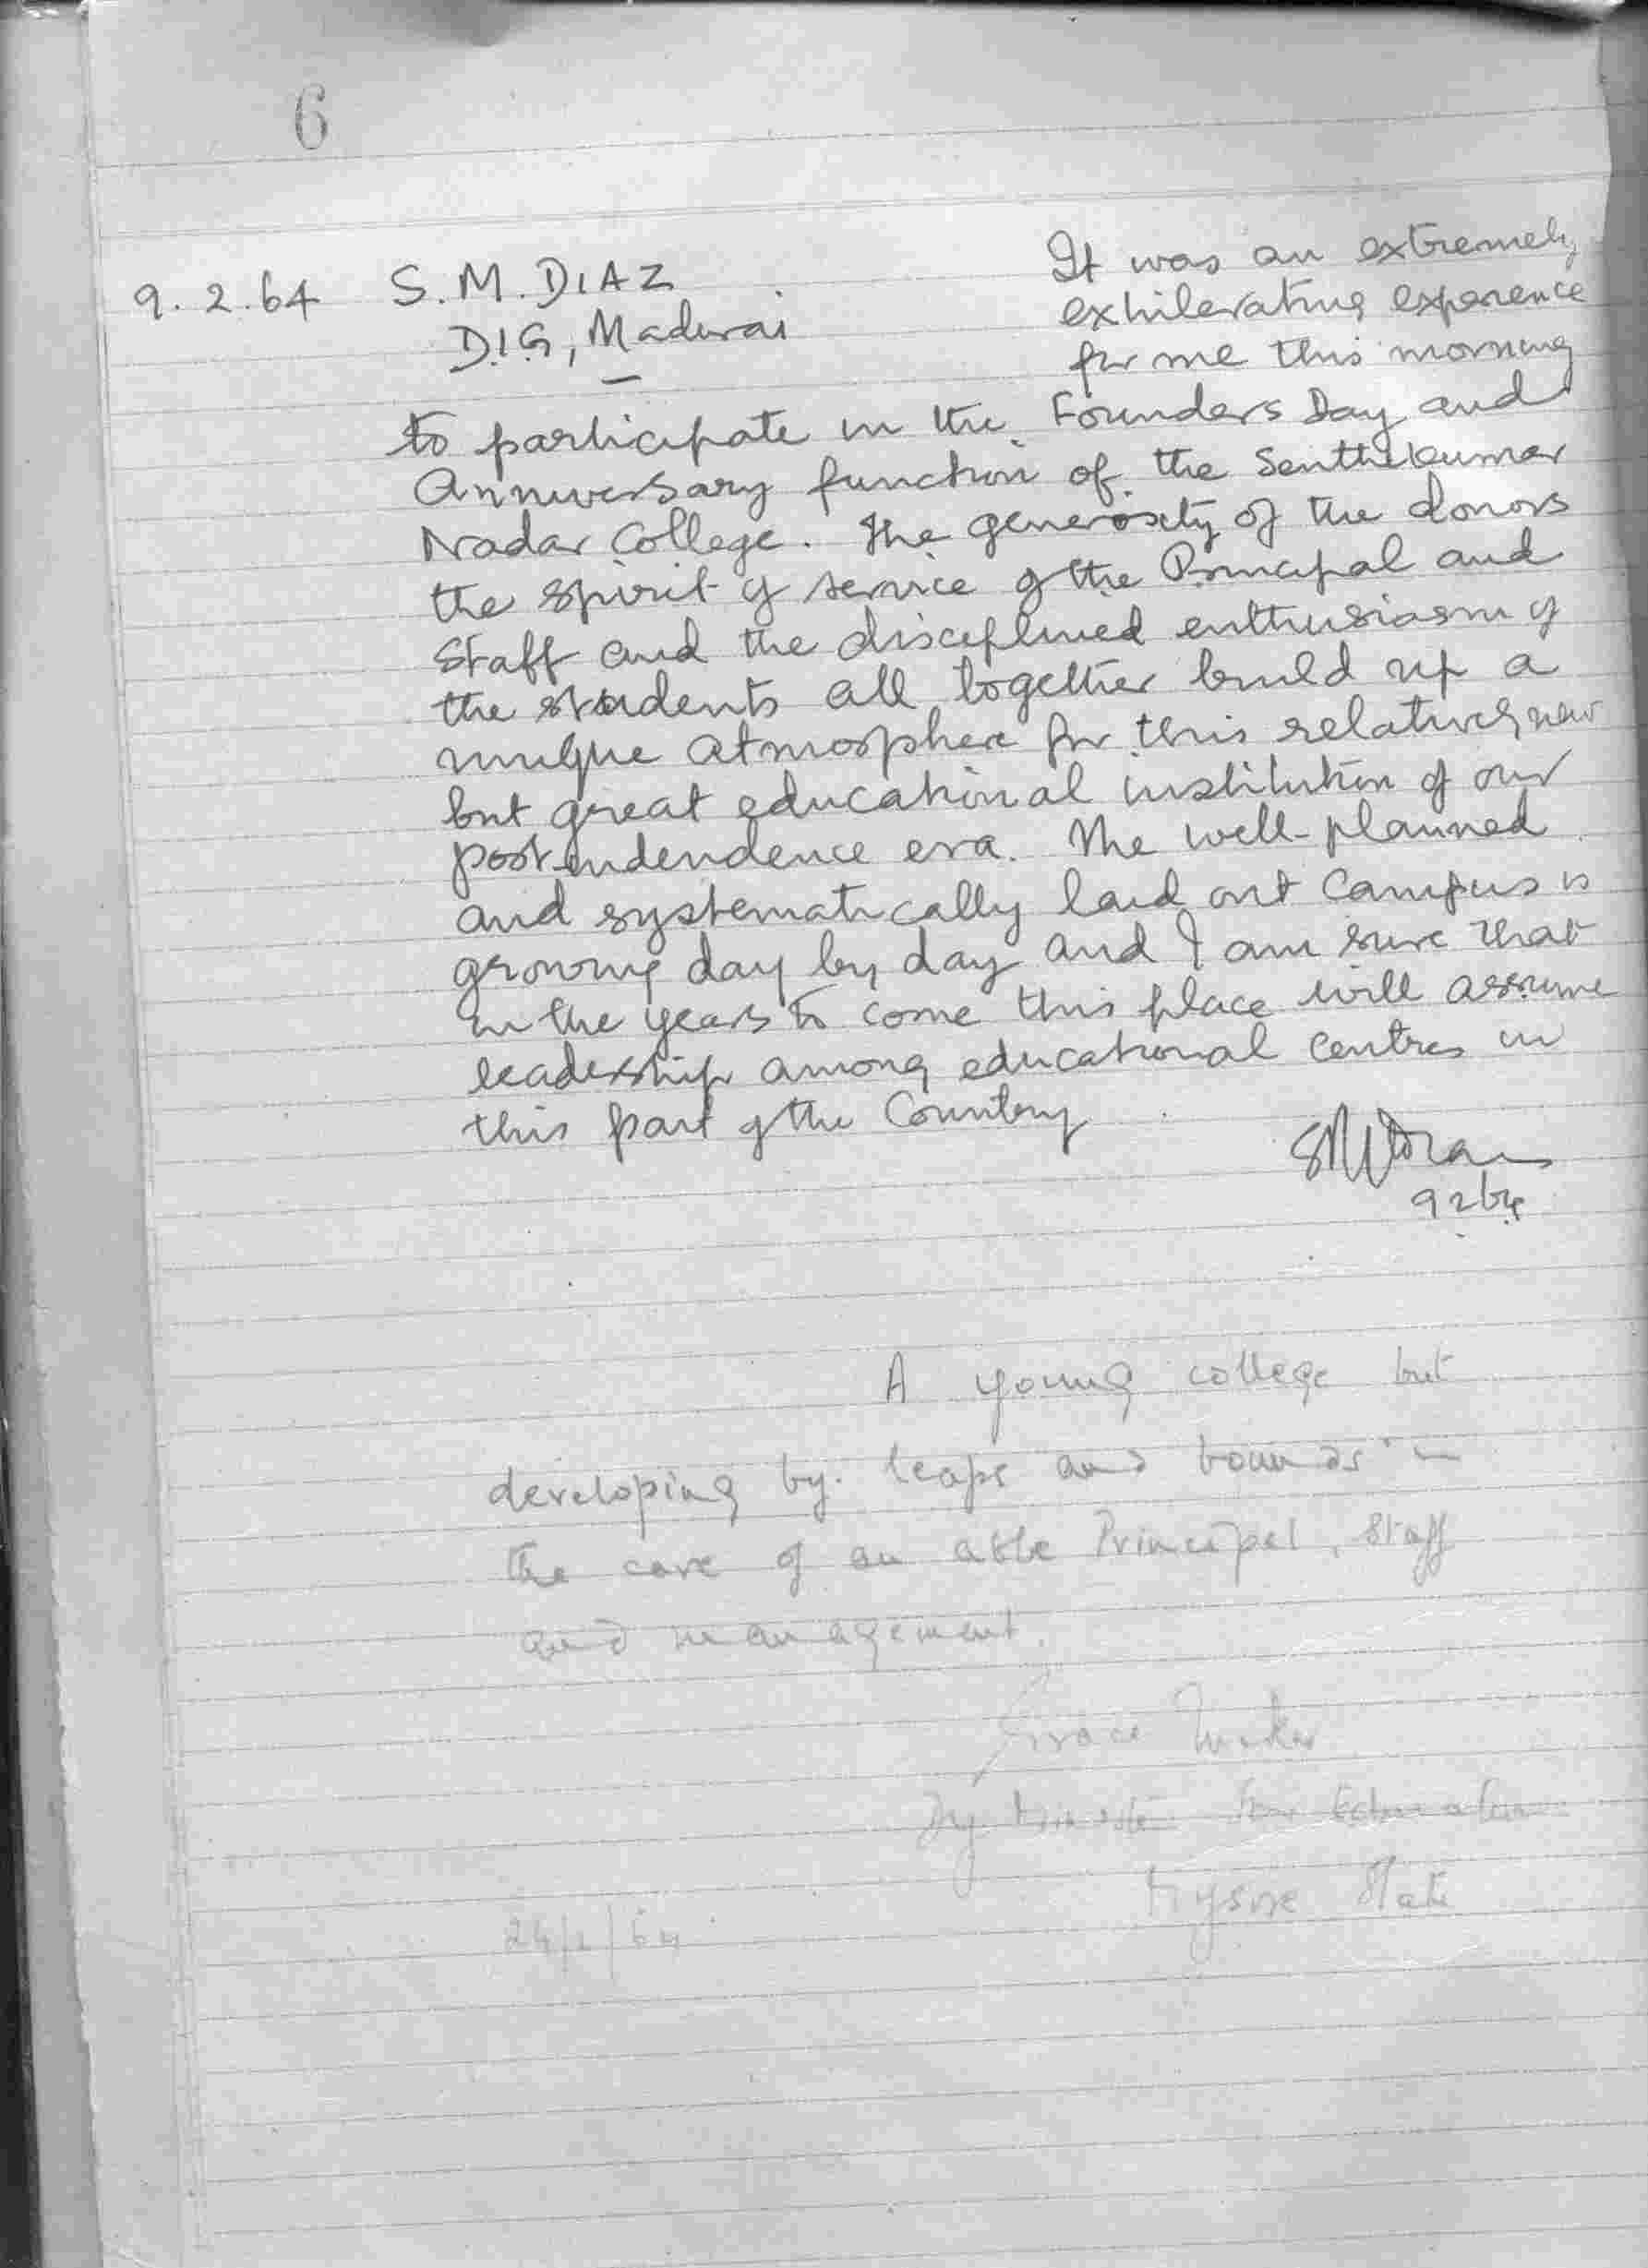 6
9.2.64 S.M. DIAZ
D.I.G, Madurai
It was an extremely
exhilerating experence
for me this morning
to participate in the Founders Day and
Anniversary function of the Senthikumar
Nadar College. The generosity of the donors
the spirit of service of the Principal and
Staff and the disciplined enthusiasm of
the students all together build up a
unique atmosphere for this relatively new
but great educational institution of our
post-indendence era. The well-planned
and systematically laid out campus is
growing day by day and I am sure that
in the years to come this place will assume
leadership among educational centres in
this part of the Country
9 2 64
A young college but
developing by leaps and bounds in
the care of an able Principal, Staff
and management.
Grace Tucker
Dy Minister for Education
Mysore State
24/2/64